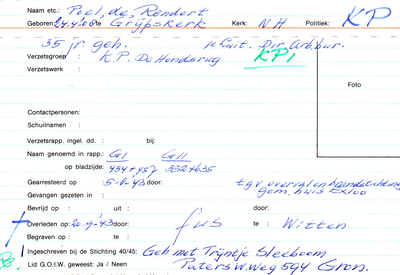 Naam etc: Poel, de, Rendert
Geboren: 24.4.06 te Grijpskerk Kerk: NH Politiek: KP
35 jr geh. Dir. Arb. bur.
Verzetsgroep : K.P. De Hondsrug KP1
Verzetswerk :
Foto
Contactpersonen:
Schuilnamen :
Verzetsrapp. ingel. dd. : bij:
Naam genoemd in rapp.: GI GII
op bladzijde: 454+457 332+635
Gearresteerd op : 5-8-'43 door: tgv overval en brandstichting
Gevangen gezeten in : gem. huis Exloo
Bevrijd op : uit : door:
Overleden op: 20-9-'43 door: fus te: Witten
Begraven op : te :
Ingeschreven bij de Stichting 40/45: Geh met Trijntje Sleeboom
Lid G.O.I.W. geweest: Ja / Neen Paters w. weg 594 Gron.